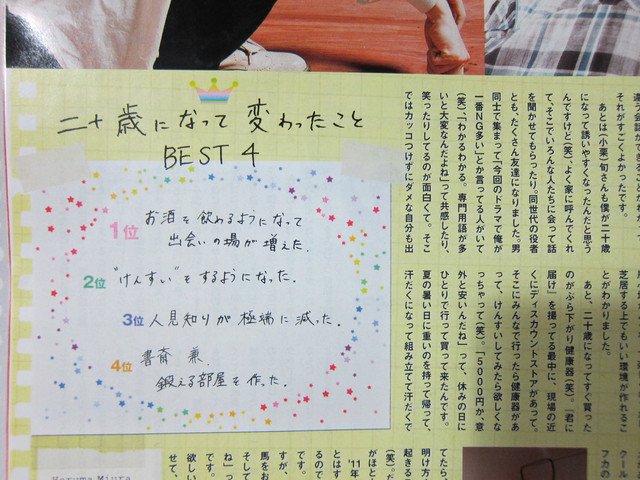 二十歳になって変わったこと
BEST 4
1位 お酒を飲めるようになって
出会いの場が増えた.
2位 "けんすい"をするようになった.
3位 人見知りが極端に減った.
4位 書斎 兼
鍛える部屋を作った.
それがすごくよかったです。
あとは(小栗)旬さんも僕が二十歳
になって誘いやすくなったんだと思う
んですけど(笑)、よく家に呼んでくれ
て、そこでいろんな人たちに会って話
を聞かせてもらったり。同世代の役者
とも、たくさん友達になりました。男
同士で集まって「今回のドラマで俺が
一番NG多い」とか言ってる人がいて
(笑)、「わかるわかる。専門用語が多
いと大変なんだよね」って共感したり、
笑ったりしてるのが面白くて。そこ
ではカッコつけずにダメな自分も出
芝居する上でもいい環境が作れるこ
とがわかりました。
あと、二十歳になってすぐ買った
のがぶら下がり健康器(笑)。『君に
届け』を撮ってる最中に、現場の近
くにディスカウントストアがあって。
そこにみんなで行ったら健康器があ
って、けんすいしてみたら欲しくな
っちゃって(笑)。「5000円か、意
外と安いんだね」って、休みの日に
ひとりで行って買って来たんです。
夏の暑い日に重いのを持って帰って、
汗だくになって組み立てて汗だくで
Haruma Miura